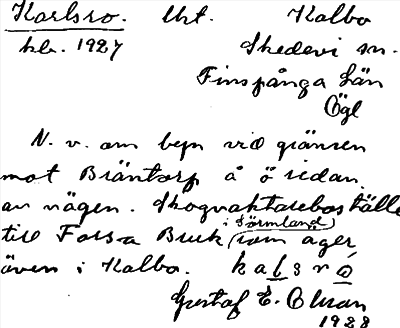 Karlsro. Uht. Kolbo
kb. 1927 Skedevi sn.
Finspånga Län
Ögl
N. v. om byn vid gränsen
mot Bräntorp å ö sidan
av vägen. Skogvaktareboställe
till Forsa Bruk (i Sörmland) som äger
även i Kolbo. kalsró
Gustaf E. Olsson
1928